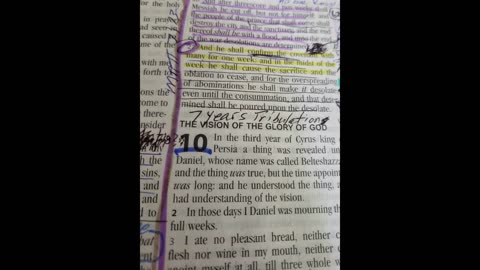 for the
in prayer
caused
me of the
with me
forth to
ons the
come to
there-
nsider
the
sins,
and
and
d to
that
Messiah be cut off, but not for himself: and
the people of the prince that shall come shall
destroy the city and the sanctuary; and the end
thereof shall be with a flood, and unto the end
of the war desolations are determined.
And he shall confirm the covenant with
many for one week: and in the midst of the
week he shall cause the sacrifice and the
oblation to cease, and for the overspreading
of abominations he shall make it desolate
even until the consummation, and that deter-
mined shall be poured upon the desolate.
7 years Tribulation
THE VISION OF THE GLORY OF GOD
10 In the third year of Cyrus king
Persia a thing was revealed un
Daniel, whose name was called Belteshazz
and the thing was true, but the time appoint
was long: and he understood the thing, a
had understanding of the vision.
2 In those days I Daniel was mourning th
full weeks.
3 I ate no pleasant bread, neither c
flesh nor wine in my mouth, neither
anoint myself at all, till three whole w